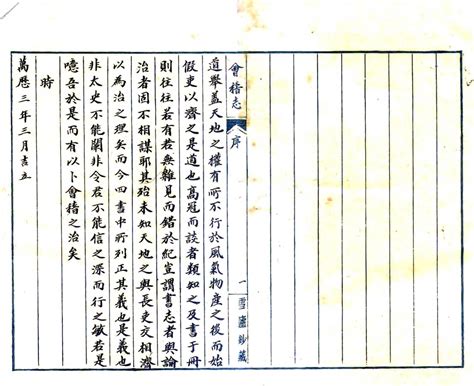 會稽志
序
一
雪廬鈔藏
道舉蓋天地之權有所不行於風氣物產之後而始
假吏以濟之是道也高冠而談者類知之及書于冊
則往往若有若無雜見而錯於紀豈謂書志者與論
治者固不相謀耶其殆未知天地之與長吏交相濟
以為治之理矣而今四書中所列正其義也是義也
非太史不能闡非令君不能信之深而行之篤若是
噫吾於是而有以卜會稽之治矣
時
萬曆三年三月吉立